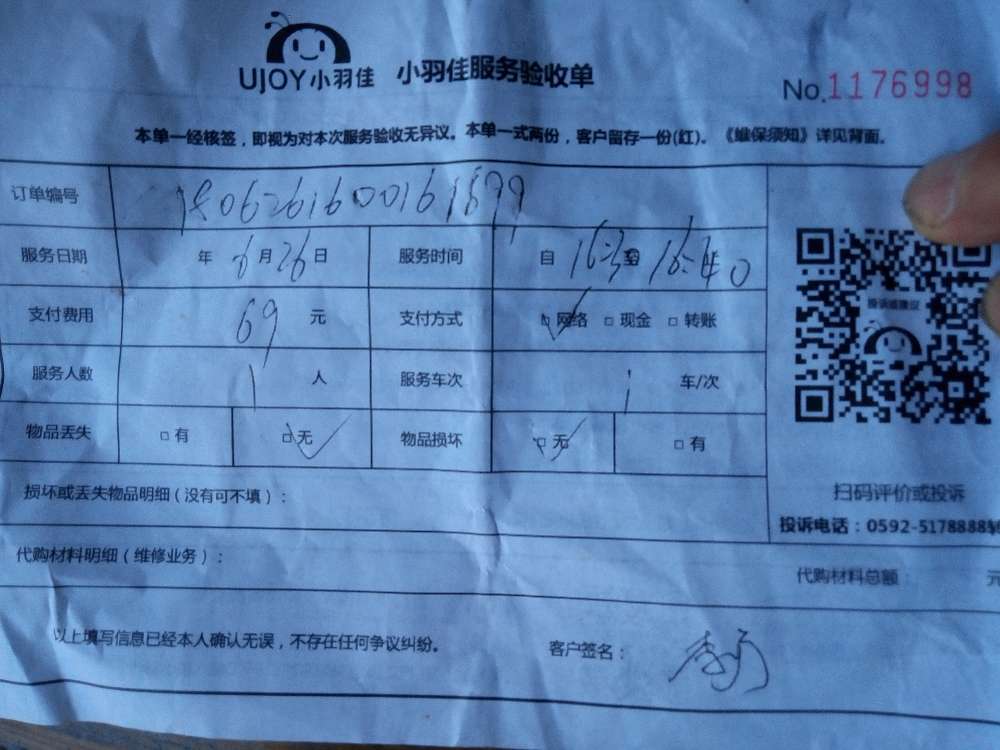 UJOY小羽佳 小羽佳服务验收单 No.1176998
本单一经核签，即视为对本次服务验收无异议。本单一式两份，客户留存一份(红)。《维保须知》详见背面。
订单编号
服务日期 年 6月26日 服务时间 自 16:3 至 16:40
支付费用 69 元 支付方式 □网络 □现金 □转账
服务人数 1 人 服务车次 1 车/次
物品丢失 □有 □无 物品损坏 □无 □有
损坏或丢失物品明细（没有可不填）：
投诉或建议
扫码评价或投诉
投诉电话：0592-5178888转
代购材料明细（维修业务）：
代购材料总额 元
以上填写信息已经本人确认无误，不存在任何争议纠纷。 客户签名：